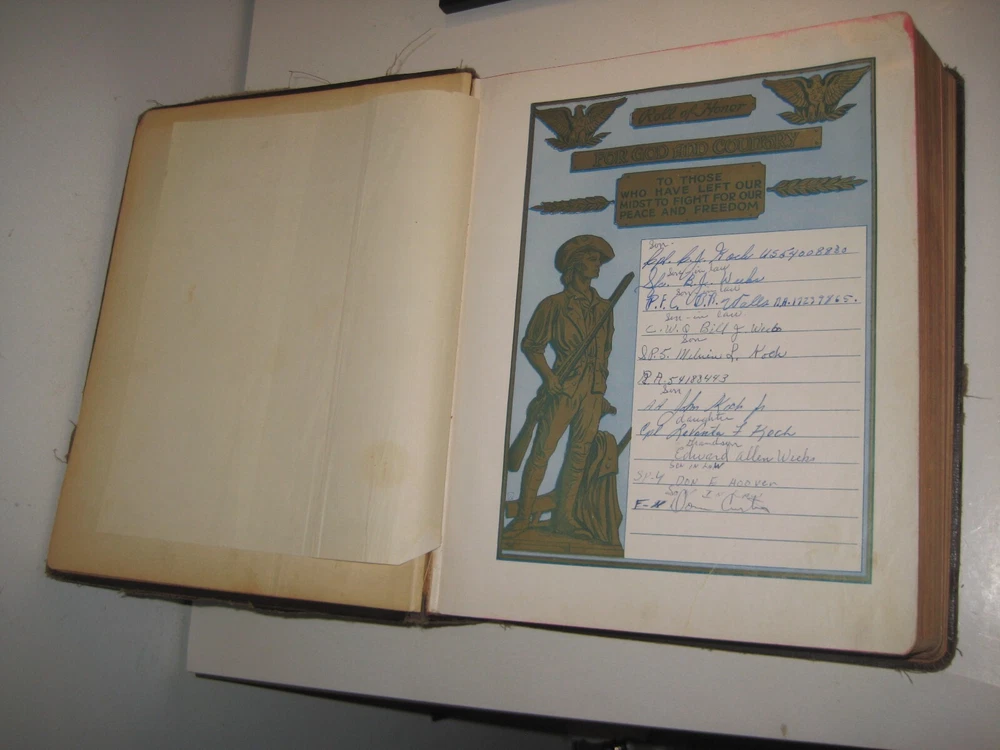 Roll of Honor
FOR GOD AND COUNTRY
TO THOSE
WHO HAVE LEFT OUR
MIDST TO FIGHT FOR OUR
PEACE AND FREEDOM
Son.
Cpl. Koch US54008880
Son in law
B.J. Weeks
Son in law
P.F.C. Walls RA.
Son-in law
C.W.O Bill J Weeks
Son
SP.5. L. Koch
RA 54188443
Son
John Koch Jr
daughter
Cpl F Koch
Grandson
Edward Allen Weeks
Son in Law
SP.4 DON E HOOVER
Son